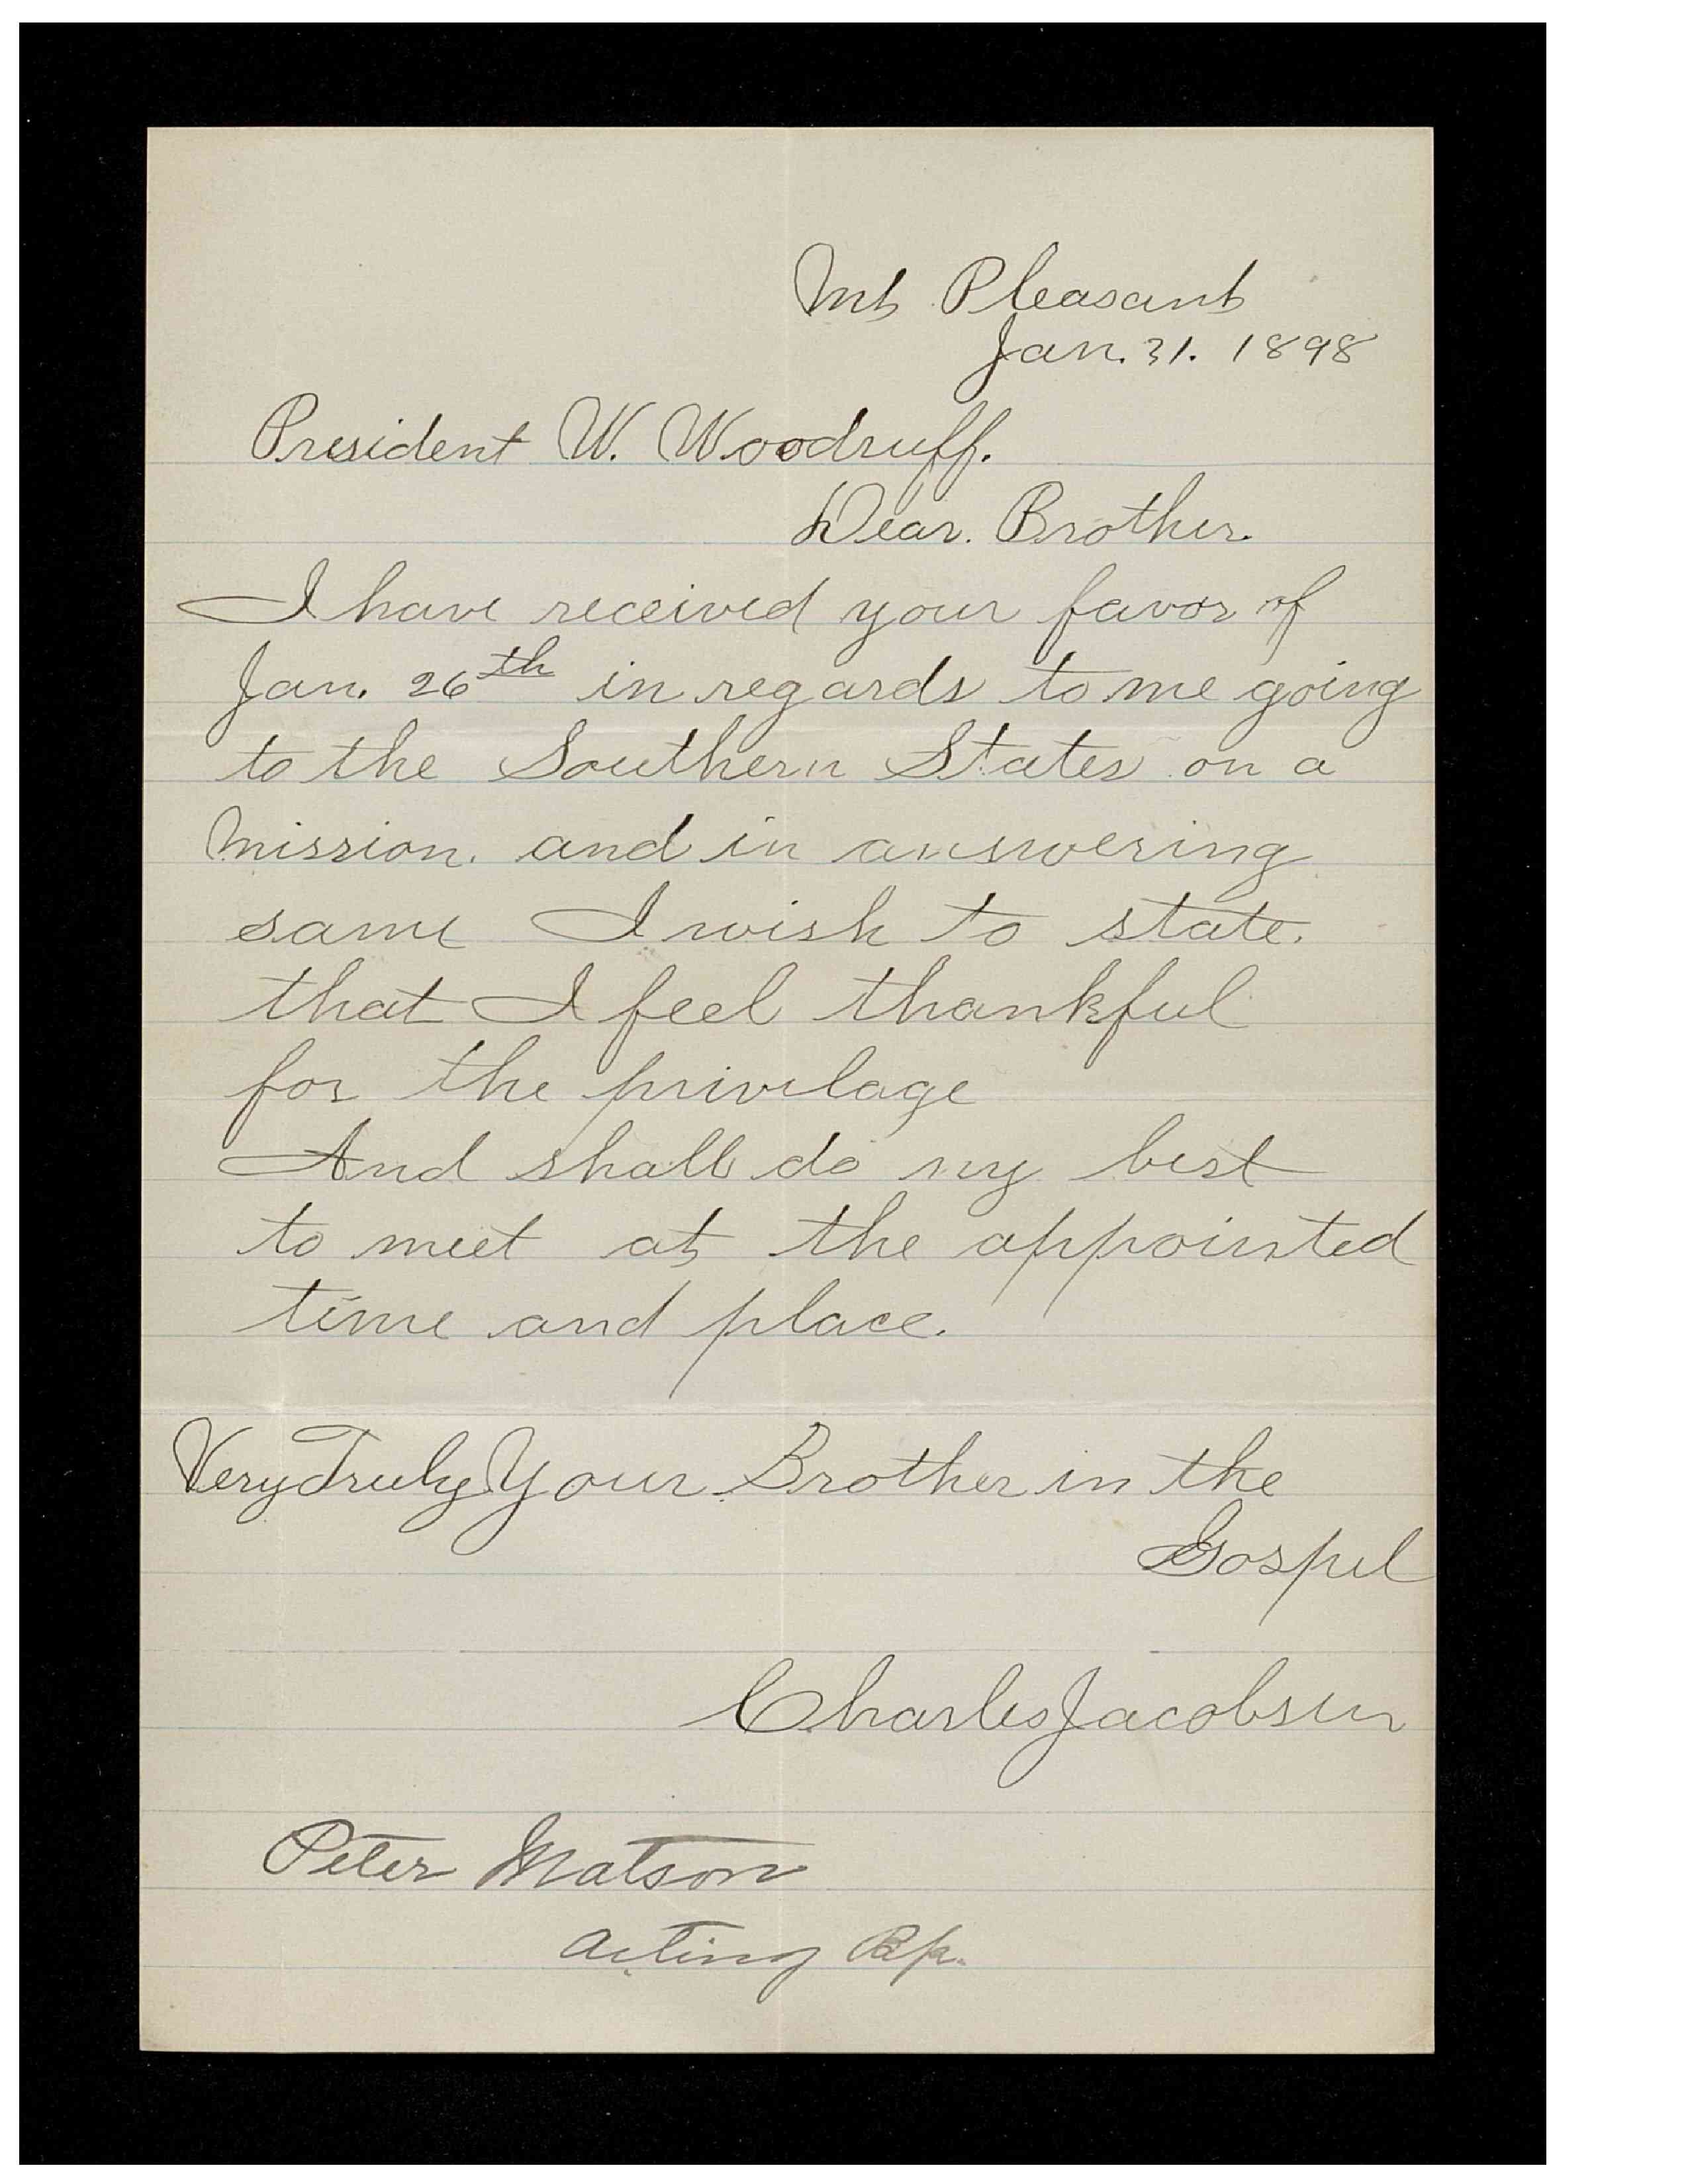 Mt Pleasant
Jan. 31. 1898
President W. Woodruff.
Dear. Brother.
I have received your favor of
Jan. 26th in regards to me going
to the Southern States on a
Mission. and in answering
same I wish to state.
that I feel thankful
for the privilage
And shall do my best
to meet at the appointed
time and place.
Very Truly Your Brother in the
Gospel
Charles Jacobsen
Peter Matson
Acting Bp.